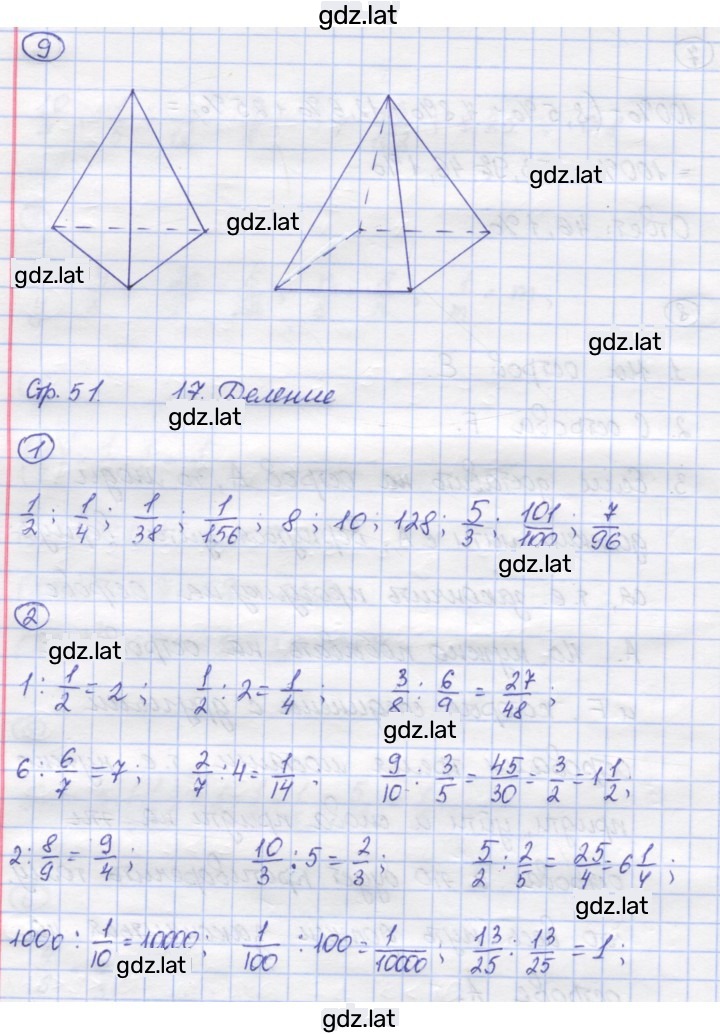 gdz.lat
9
gdz.lat
gdz.lat
gdz.lat
gdz.lat
Стр. 51. 17. Деление
gdz.lat
1
1/2; 1/4; 1/38; 1/156; 8; 10; 128; 5/3; 101/100; 7/96
gdz.lat
2
gdz.lat
1 : 1/2 = 2; 1/2 : 2 = 1/4; 3/8 : 6/9 = 27/48;
gdz.lat
6 : 6/7 = 7; 2/7 : 4 = 1/14; 9/10 : 3/5 = 45/30 = 3/2 = 1 1/2;
2 : 8/9 = 9/4; 10/3 : 5 = 2/3; 5/2 : 2/5 = 25/4 = 6 1/4;
gdz.lat
1000 : 1/10 = 10000; 1/100 : 100 = 1/10000; 13/25 : 13/25 = 1;
gdz.lat
gdz.lat